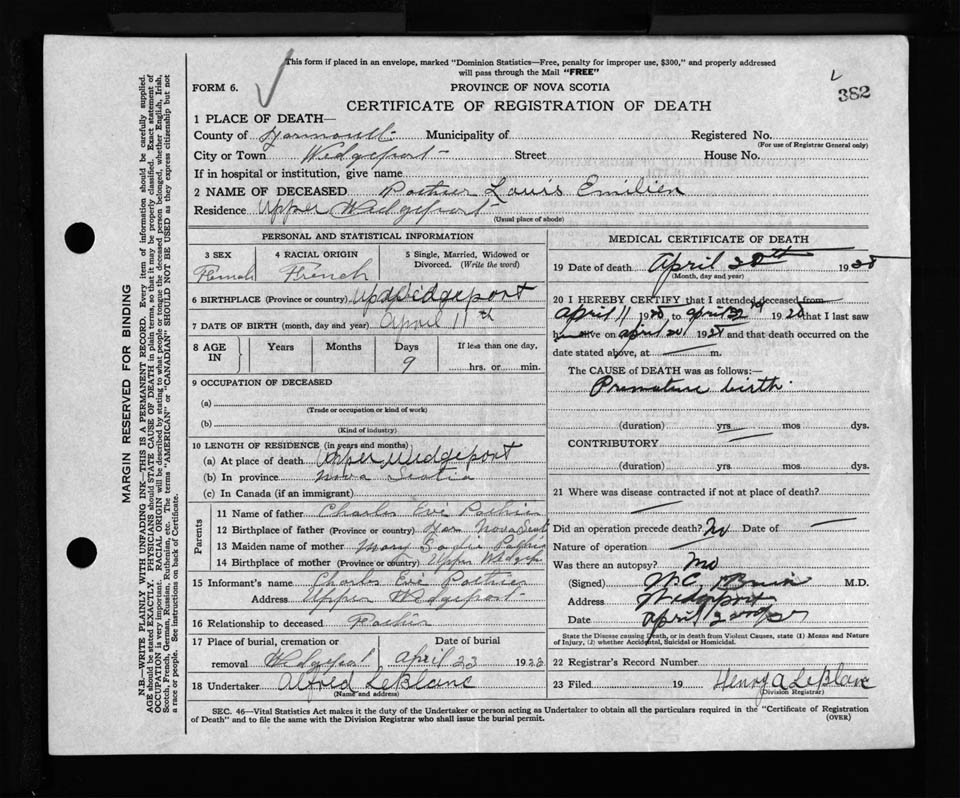 This form if placed in an envelope, marked "Dominion Statistics—Free, penalty for improper use, $300," and properly addressed
will pass through the Mail "FREE"
382
FORM 6.
PROVINCE OF NOVA SCOTIA
CERTIFICATE OF REGISTRATION OF DEATH
1 PLACE OF DEATH—
County of Yarmouth Municipality of Registered No.
(For use of Registrar General only)
City or Town Wedgeport Street House No.
If in hospital or institution, give name
2 NAME OF DECEASED Pothier Louis Emilien
Residence Upper Wedgeport
(Usual place of abode)
PERSONAL AND STATISTICAL INFORMATION
3 SEX
4 RACIAL ORIGIN French
5 Single, Married, Widowed or Divorced. (Write the word)
6 BIRTHPLACE (Province or country)
7 DATE OF BIRTH (month, day and year) April 11th
8 AGE IN
Years Months Days If less than one day,
9 hrs. or min.
9 OCCUPATION OF DECEASED
(a)
(Trade or occupation or kind of work)
(b)
(Kind of industry)
10 LENGTH OF RESIDENCE (in years and months)
(a) At place of death Upper Wedgeport
(b) In province Nova Scotia
(c) In Canada (if an immigrant)
Parents
11 Name of father Charles Eve Pothier
12 Birthplace of father (Province or country) Yar Nova Scoti
13 Maiden name of mother Mary
14 Birthplace of mother (Province or country) Upper Wedgep
15 Informant's name Charles Eve Pothier
Address Upper Wedgeport
16 Relationship to deceased
17 Place of burial, cremation or Date of burial
removal Wedgeport April 23 1928
18 Undertaker Alfred LeBlanc
(Name and address)
MEDICAL CERTIFICATE OF DEATH
19 Date of death April 20th 1928
(Month, day and year)
20 I HEREBY CERTIFY that I attended deceased from
April 11 1928 to April 1928 that I last saw
h alive on April 20 1928 and that death occurred on the
date stated above, at m.
The CAUSE of DEATH was as follows:—
Premature birth
(duration) yrs mos dys.
CONTRIBUTORY
(duration) yrs mos dys.
21 Where was disease contracted if not at place of death?
Did an operation precede death? No Date of
Nature of operation
Was there an autopsy? No
(Signed) M.D.
Address Wedgeport
Date April
State the Disease causing Death, or in death from Violent Causes, state (1) Means and Nature
of Injury, (2) whether Accidental, Suicidal or Homicidal.
22 Registrar's Record Number
23 Filed 19 Henry A LeBlanc
(Division Registrar)
SEC. 46—Vital Statistics Act makes it the duty of the Undertaker or person acting as Undertaker to obtain all the particulars required in the "Certificate of Registration
of Death" and to file the same with the Division Registrar who shall issue the burial permit.
(OVER)
MARGIN RESERVED FOR BINDING
N.B.—WRITE PLAINLY WITH UNFADING INK—THIS IS A PERMANENT RECORD. Every item of information should be carefully supplied.
AGE should be stated EXACTLY. PHYSICIANS should STATE CAUSE OF DEATH in plain terms, so that it may be properly classified. Exact statement of
OCCUPATION is very important. RACIAL ORIGIN will be described by stating to what people or tongue the deceased person belonged, whether English, Irish,
Scotch, French, German, Russian, Ruthenian, etc. The terms "AMERICAN" or "CANADIAN" SHOULD NOT BE USED as they express citizenship but not
a race or people. See instructions on back of Certificate.